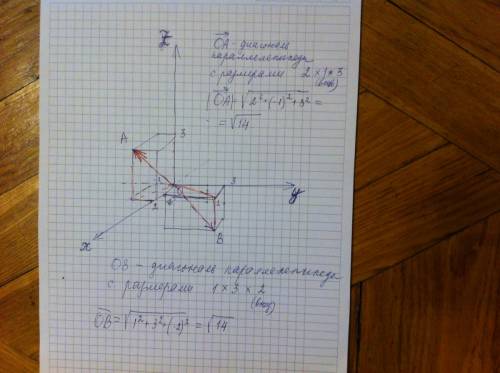 Z
OA - диагональ
параллелепипеда
с размерами 2 x 1 x 3
|OA| = √2²+(-1)²+3² =
= √14
A
3
3
y
2
x
B
OB - диагональ параллелепипеда
с размерами 1 x 3 x 2
OB = √1²+3²+(-2)² = √14